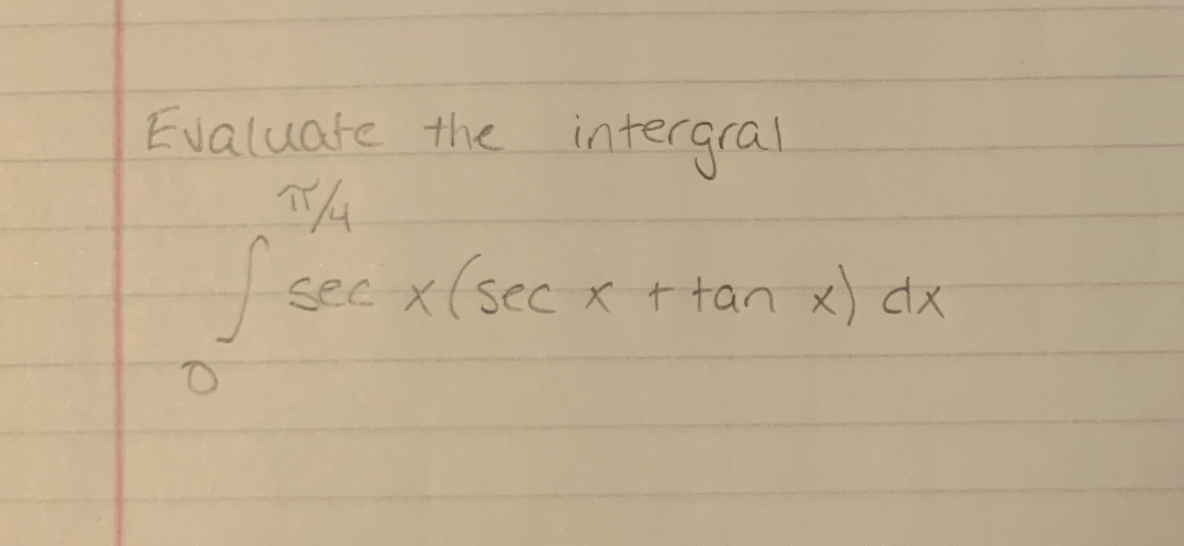 Evaluate the intergral
π/4
∫ sec x (sec x + tan x) dx
0